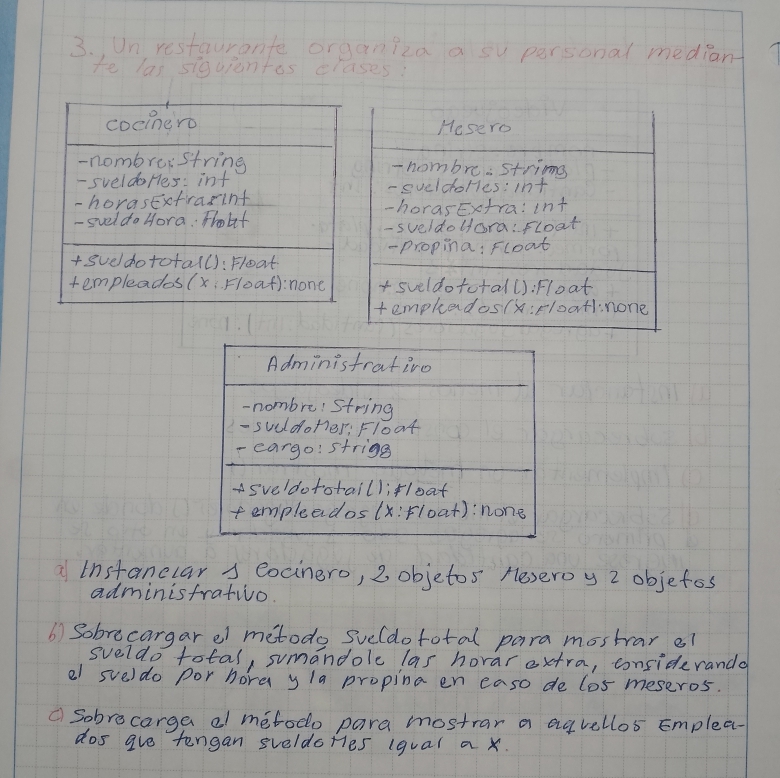 3. Un restaurante organiza a su personal median-
te las siguientes clases:
cocinero
-nombre: String
-sueldoMes: int
-horasExtra: int
-sueldoHora: Float
+sueldototal(): Float
+empleados(x: Float): none
Mesero
-nombre: String
-sueldoMes: int
-horasExtra: int
-sueldoHora: Float
-propina: Float
+sueldototal(): Float
+empleados(x: Float): none
Administrativo
-nombre: String
-sueldoMes: Float
-cargo: String
+sueldototal(): Float
+empleados(x: Float): none
a) Instanciar 1 cocinero, 2 objetos Mesero y 2 objetos
administrativo.
b) Sobrecargar el método Sueldototal para mostrar el
sueldo total, sumándole las horas extra, considerando
el sueldo por hora y la propina en caso de los meseros.
c) Sobrecarga el método para mostrar a aquellos Emplea-
dos que tengan sueldoMes igual a X.